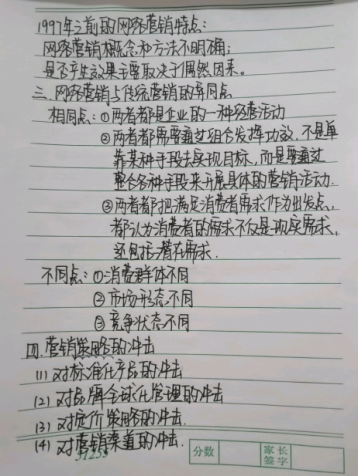 1997年之前的网络营销特点:
网络营销概念和方法不明确;
是否产生效果主要取决于偶然因素。
三、网络营销与传统营销的异同点
相同点:①两者都是企业的一种经营活动
②两者都需要通过组合发挥功效,不是单
靠某种手段去实现目标,而是要通过
整合各种手段来开展具体的营销活动.
③两者都把满足消费者需求作为出发点,
都认为消费者的需求不仅是现实需求,
还包括潜在需求.
不同点:①消费群体不同
②市场形态不同
③竞争状态不同
四.营销策略的冲击
(1) 对标准化产品的冲击
(2) 对品牌全球化管理的冲击
(3) 对定价策略的冲击.
(4) 对营销渠道的冲击.
分数
家长签字